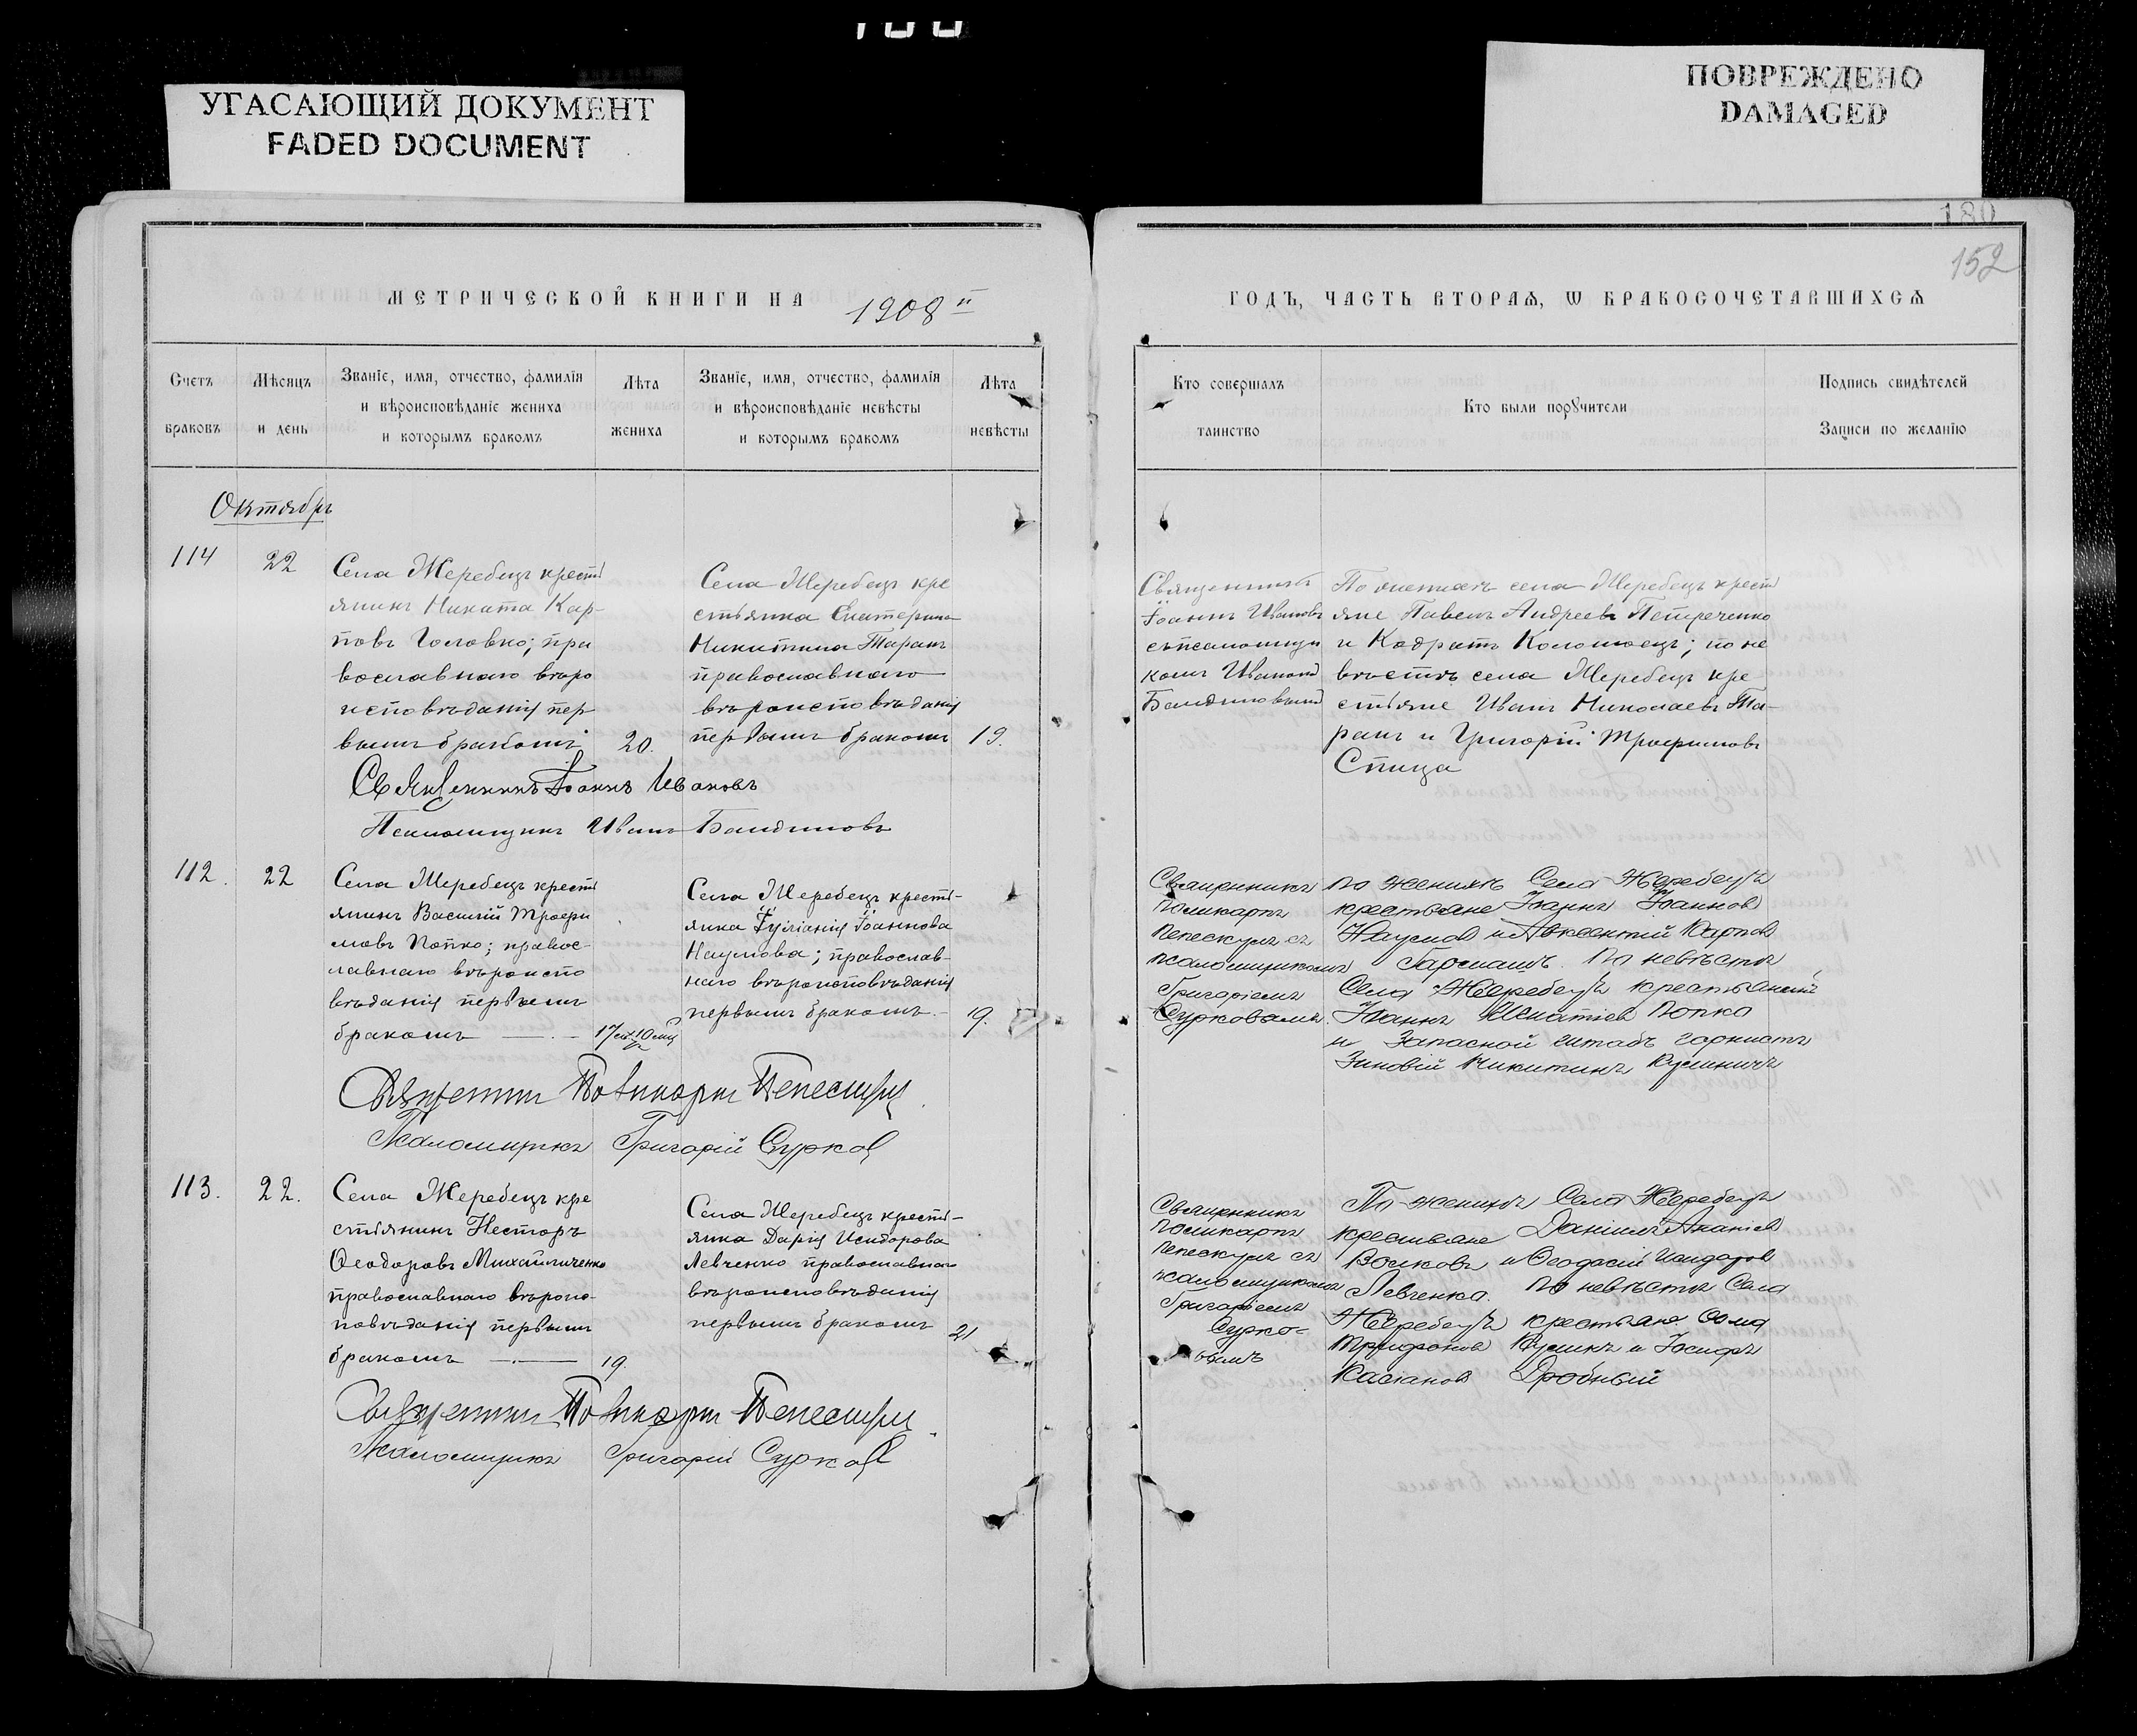 УГАСАЮЩИЙ ДОКУМЕНТ
FADED DOCUMENT
ПОВРЕЖДЕНО
DAMAGED
180
152
МЕТРИЧЕСКОЙ КНИГИ НА 1908
ГОДЪ, ЧАСТЬ ВТОРАѦ, Ѡ БРАКОСОЧЕТАВШИХСѦ
Счетъ браковъ
Мѣсяцъ и день
Званіе, имя, отчество, фамилія
и вѣроисповѣданіе жениха
и которымъ бракомъ
Лѣта жениха
Званіе, имя, отчество, фамилія
и вѣроисповѣданіе невѣсты
и которымъ бракомъ
Лѣта невѣсты
Кто совершалъ
таинство
Кто были порꙋчители
Подпись свидѣтелей
Записи по желанію
Октябрь
114
22
Села Жеребецъ кресть
янинъ Никита Кар-
повъ Головко; пра
вославнаго вѣро
исповѣданія пер
вымъ бракомъ
20.
Села Жеребецъ кре
стьянка Екатерина
Никитина Таранъ
православнаго
вѣроисповѣданія
первымъ бракомъ
19.
Священникъ
Іоаннъ Ивановъ
съ псаломщи
комъ Иваномъ
По женихѣ села Жеребецъ крест
яне Павелъ Андреевъ Петреченко
и Кодратъ Коломоецъ; по не
вѣстѣ села Жеребецъ кре
стьяне Иванъ Николаевъ Та-
ранъ и Григорій Трофимовъ
Спица
Священникъ Іоаннъ Ивановъ
Псаломщикъ Иванъ
112.
22
Села Жеребецъ кресть
янинъ Василій Трофи
мовъ Попко; правос-
лавнаго вѣроиспо
вѣданія первымъ
бракомъ
Села Жеребецъ кресть-
янка Іуліанія Іоаннова
Наумова; православ-
наго вѣроисповѣданія
первымъ бракомъ.
19.
Священникъ
Поликарпъ
съ
псаломщикомъ
Григоріемъ
Сурковымъ.
По женихѣ Села Жеребецъ
крестьяне Іоаннъ Іоаннов
Наумов и Авксентій Карпов
По невѣстѣ
Села Жеребецъ
Іоаннъ Игнатіев Попко
и Запасной штабъ горнистъ
Зиновій Никитинъ
Священникъ Поликарпъ
Псаломщикъ Григорій Сурков
113.
22.
Села Жеребецъ кре
стьянинъ Несторъ
Ѳеодоровъ Михайличенко
православнаго вѣроис-
повѣданія первымъ
бракомъ
19.
Села Жеребецъ кресть-
янка Дарія Исидорова
Левченко православнаго
вѣроисповѣданія
первымъ бракомъ
21
Священникъ
Поликарпъ
съ
псаломщикомъ
Григоріемъ
Сурко-
вымъ
По женихѣ Села Жеребецъ
крестьяне Даніилъ
Волковъ и Ѳеодосій Исидоров
Левченко. По невѣстѣ Села
Жеребецъ крестьяне Ѳома
Трифонов и Іосифъ
Касіанов Дробный
Священникъ Поликарпъ
Псаломщикъ Григорій Сурков